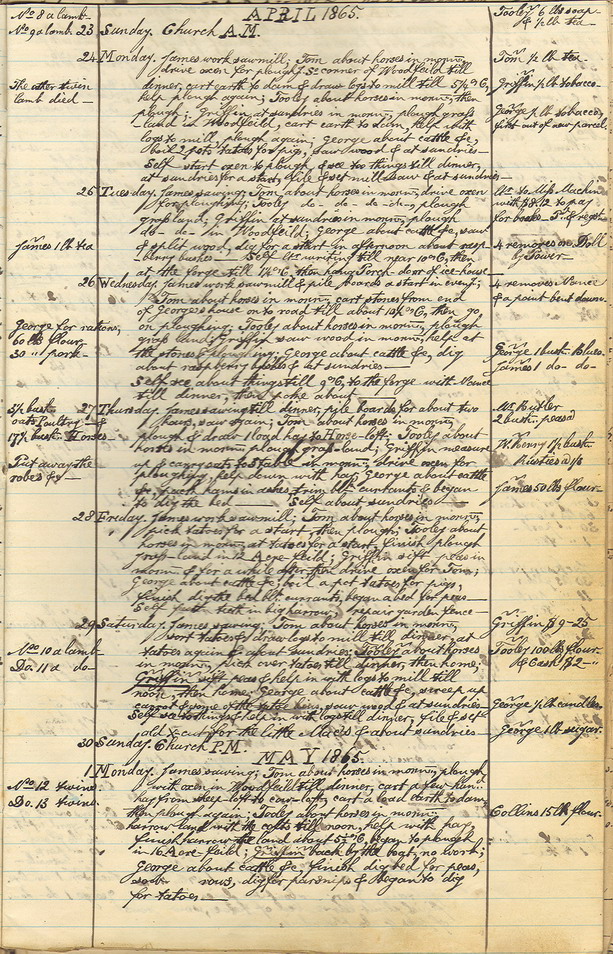 APRIL 1865.
No 8 a lamb
No 9 a lamb
23 Sunday. Church A.M.
Tooley 6 lbs soap
& ½ lb tea
24 Monday. James work sawmill; Tom about horses in mornn,
drive oxen for ploughg So conner of Woodfeild till
dinner, cart earth to dam & draw logs to mill till 5¼ o'C,
help plough again; Tooley about horses in mornn, then
plough; Griffin at sundries in mornn, plough grass
land in Woodfeild, cart earth to dam, help with
logs to mill, plough again; George about cattle &c,
boil 2 pots tatoes for pigs, saw wood & at sundries
Self start oxen to plough, & see to things till dinner,
at sundries for a start, file & set mill saw & at sundries
The other twin
lamb died
Tom ½ lb tea
Griffin plt tobacco
George plt tobacco,
first out of new parcel.
25 Tuesday. James sawing; Tom about horses in mornn, drive oxen
for ploughing; Tooley do- do- do-do-, plough
grass land; Griffin at sundries in mornn, plough
do- do- in Woodfeild; George about cattle &c, saw
& split wood, dig for a start in afternoon about rasp
berry bushes Self writing till near 10 o'C, then
at the forge till 1¼ o'C, then hang Porch door of ice house
James 1 lb tea
with $8.12 to pay
for books
4 removes on Doll
by Tower
26 Wednesday. James work sawmill & pile boards a start in eveng;
Tom about horses in mornn, cart stones from end
of George's house on to road till about 10¼ o'C, then go
on ploughing; Tooley about horses in mornn, plough
grass land; Griffin saw wood in mornn, help at
the stones & ploughing; George about cattle &c, dig
about raspberry bushes & at sundries
Self see about things till 9 o'C, to the forge with Nance
till dinner, then poke about
George for rations,
60 lbs flour
30 " pork
4 removes Nance
& a point bent down.
George 1 bush. Blues
James 1 do- do-
27 Thursday. James sawing till dinner, pile boards for about two
hours, saw again; Tom about horses in mornn,
plough & draw 1 load hay to Horse-loft; Tooley about
horses in mornn, plough grass-land; Griffin measure
up & carry oats to Stable in mornn, drive oxen for
ploughing, help down with hay; George about cattle
&c, pack hams in ashes, trim blk currants & began
to dig the bed Self about sundries
5½ bush
oats Poultry
17½ bush. Horses
Put away the
robes &c
Mr Butler
2 bush. peas
W. Henry 1½ bush
Rusties
James 50 lbs flour
28 Friday. James work sawmill; Tom about horses in mornn,
pick tatoes for a start, then plough; Tooley about
horses in mornn, at tatoes for a start, finish plough
grass-land in Acre-feild; Griffin sift peas in
mornn & for a while after, then drive oxen for Tom;
George about cattle &c, boil a pot tatoes for pigs,
finish dig the bed blk. currants, began a bed for peas
Self put teeth in big harrow, repair garden fence
29 Saturday. James sawing; Tom about horses in mornn,
sort tatoes & draw logs to mill till dinner, at
tatoes again & about sundries; Tooley about horses
in mornn, pick over tatoes till dinner, then home;
Griffin sift peas & help in with logs to mill till
noon, then home; George about cattle &c, sweep up
saw wood & at sundries
Self see to things & help in with logs till dinner, file & set
1 old X-cut for the little & about sundries
No 10 a lamb
Do. 11 a do
Griffin $9-25
Tooley 100 lbs flour
& Cash $2-"
George ½ lb candles
George 1 lb sugar
30 Sunday. Church P.M.
MAY 1865.
1 Monday. James sawing; Tom about horses in mornn, plough
with oxen in Woodfeild till dinner, cart a few hun:
hay from sheep loft to cow-loft, cart a load earth to dam,
then plough again; Tooley about horses in mornn,
harrow land with the colts till noon, help with hay
finish harrow the land about 5½ o'C, began to plough
in 16 Acre feild; Griffin back by the boat, no work;
George about cattle &c, finish dig bed for peas,
sow rows, dig for parsnips & began to dig
for tatoes
No 12 twins
Do. 13 twins
Collins 15 lb flour